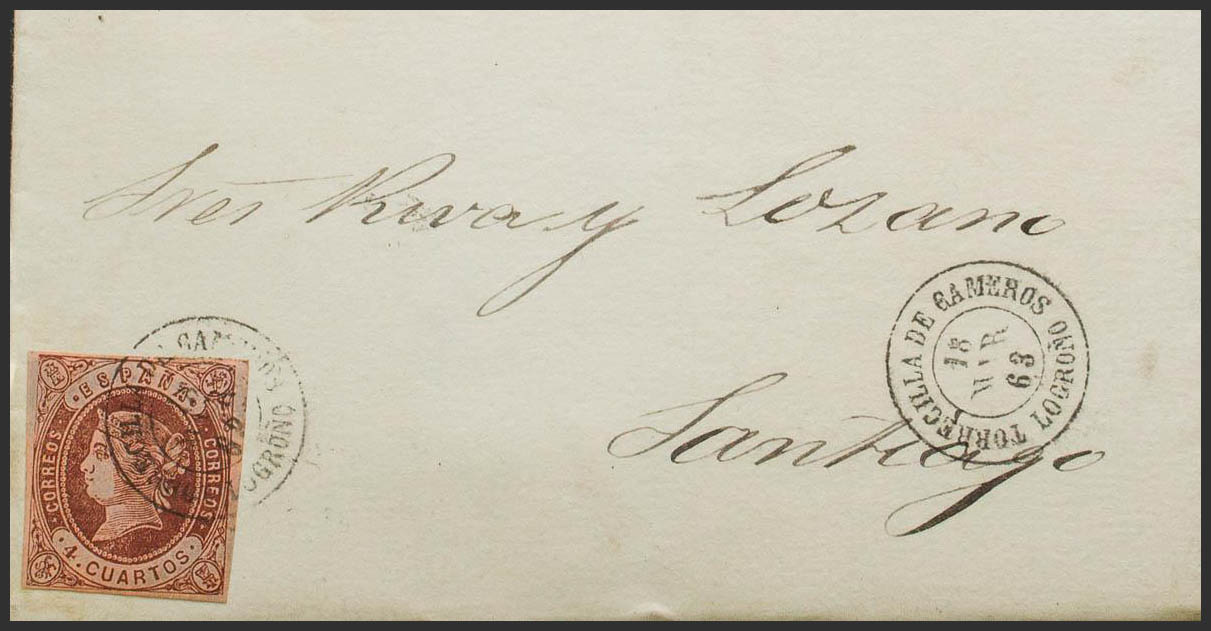 Sres Riva y Lozano
Santiago
TORRECILLA DE CAMEROS LOGROÑO
18
MAR
63
CAMEROS
LOGROÑO
ESPAÑA
CORREOS
CORREOS
4. CUARTOS.